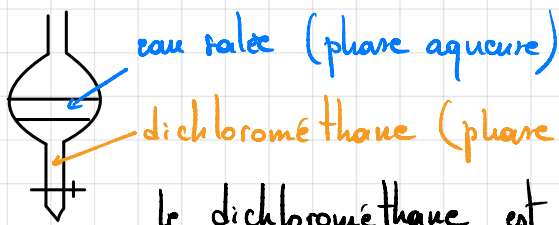 eau salée (phase aqueuse)
dichlorométhane (phase
le dichlorométhane est